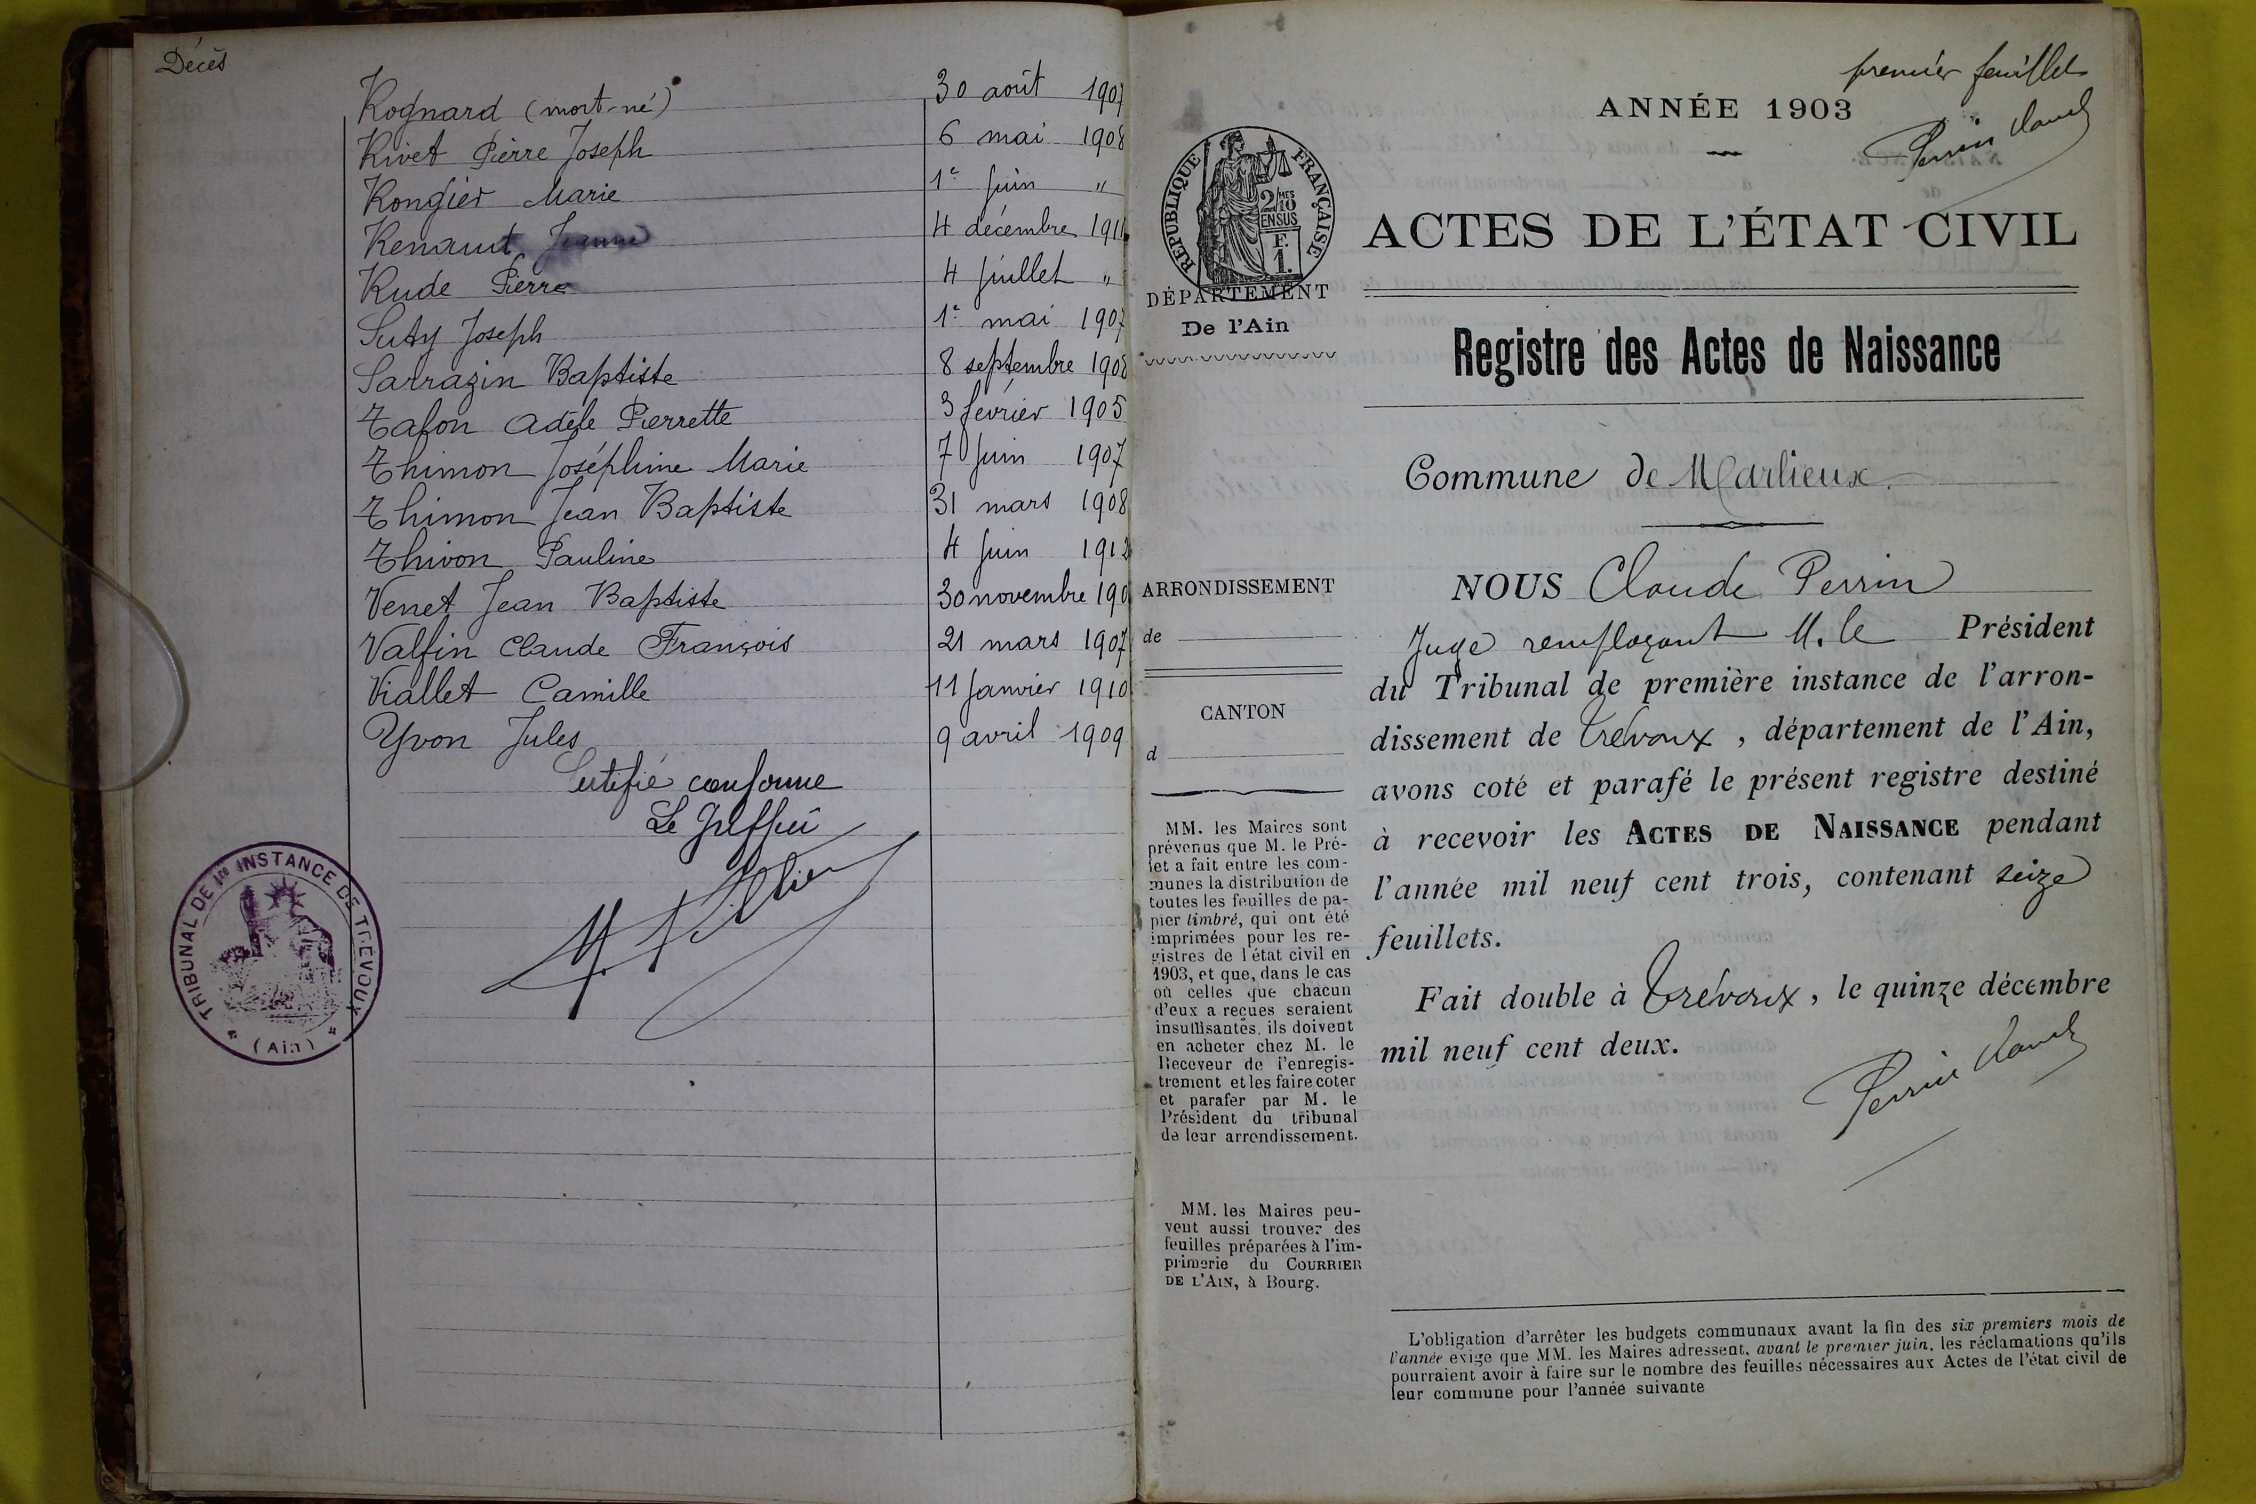 Décès
Rognard (mort-né) 30 août 1907
Rivet Pierre Joseph 6 mai 1908
Rongier Marie 1er juin "
Renaud Jeanne 4 décembre 1911
Rude Pierre 4 juillet "
Suty Joseph 1er mai 1907
Sarrazin Baptiste 8 septembre 1908
Tafon Adèle Pierrette 3 février 1905
Thimon Joséphine Marie 7 juin 1907
Thimon Jean Baptiste 31 mars 1908
Thivon Pauline 4 juin 1912
Venet Jean Baptiste 30 novembre 190
Valfin Claude François 21 mars 1907
Viallet Camille 11 janvier 1910
Yvon Jules 9 avril 1909
Certifié conforme
Le Greffier
TRIBUNAL DE 1re INSTANCE DE TREVOUX
(Ain)
premier feuillet
ANNÉE 1903
Perrin Claude
RÉPUBLIQUE FRANÇAISE
2/10 MES
EN SUS
F.
1.
ACTES DE L'ÉTAT CIVIL
DÉPARTEMENT
De l'Ain
Registre des Actes de Naissance
Commune de Marlieux.
ARRONDISSEMENT
de
CANTON
d
MM. les Maires sont
prévenus que M. le Pré-
fet a fait entre les com-
munes la distribution de
toutes les feuilles de pa-
pier timbré, qui ont été
imprimées pour les re-
gistres de l'état civil en
1903, et que, dans le cas
où celles que chacun
d'eux a reçues seraient
insuffisantes, ils doivent
en acheter chez M. le
Receveur de l'enregis-
trement et les faire coter
et parafer par M. le
Président du tribunal
de leur arrondissement.
MM. les Maires peu-
vent aussi trouver des
feuilles préparées à l'im-
primerie du COURRIER
DE L'AIN, à Bourg.
NOUS Claude Perrin
Juge remplaçant M. le Président
du Tribunal de première instance de l'arron-
dissement de Trévoux, département de l'Ain,
avons coté et parafé le présent registre destiné
à recevoir les ACTES DE NAISSANCE pendant
l'année mil neuf cent trois, contenant seize
feuillets.
Fait double à Trévoux, le quinze décembre
mil neuf cent deux.
Perrin Claude
L'obligation d'arrêter les budgets communaux avant la fin des six premiers mois de
l'année exige que MM. les Maires adressent, avant le premier juin, les réclamations qu'ils
pourraient avoir à faire sur le nombre des feuilles nécessaires aux Actes de l'état civil de
leur commune pour l'année suivante